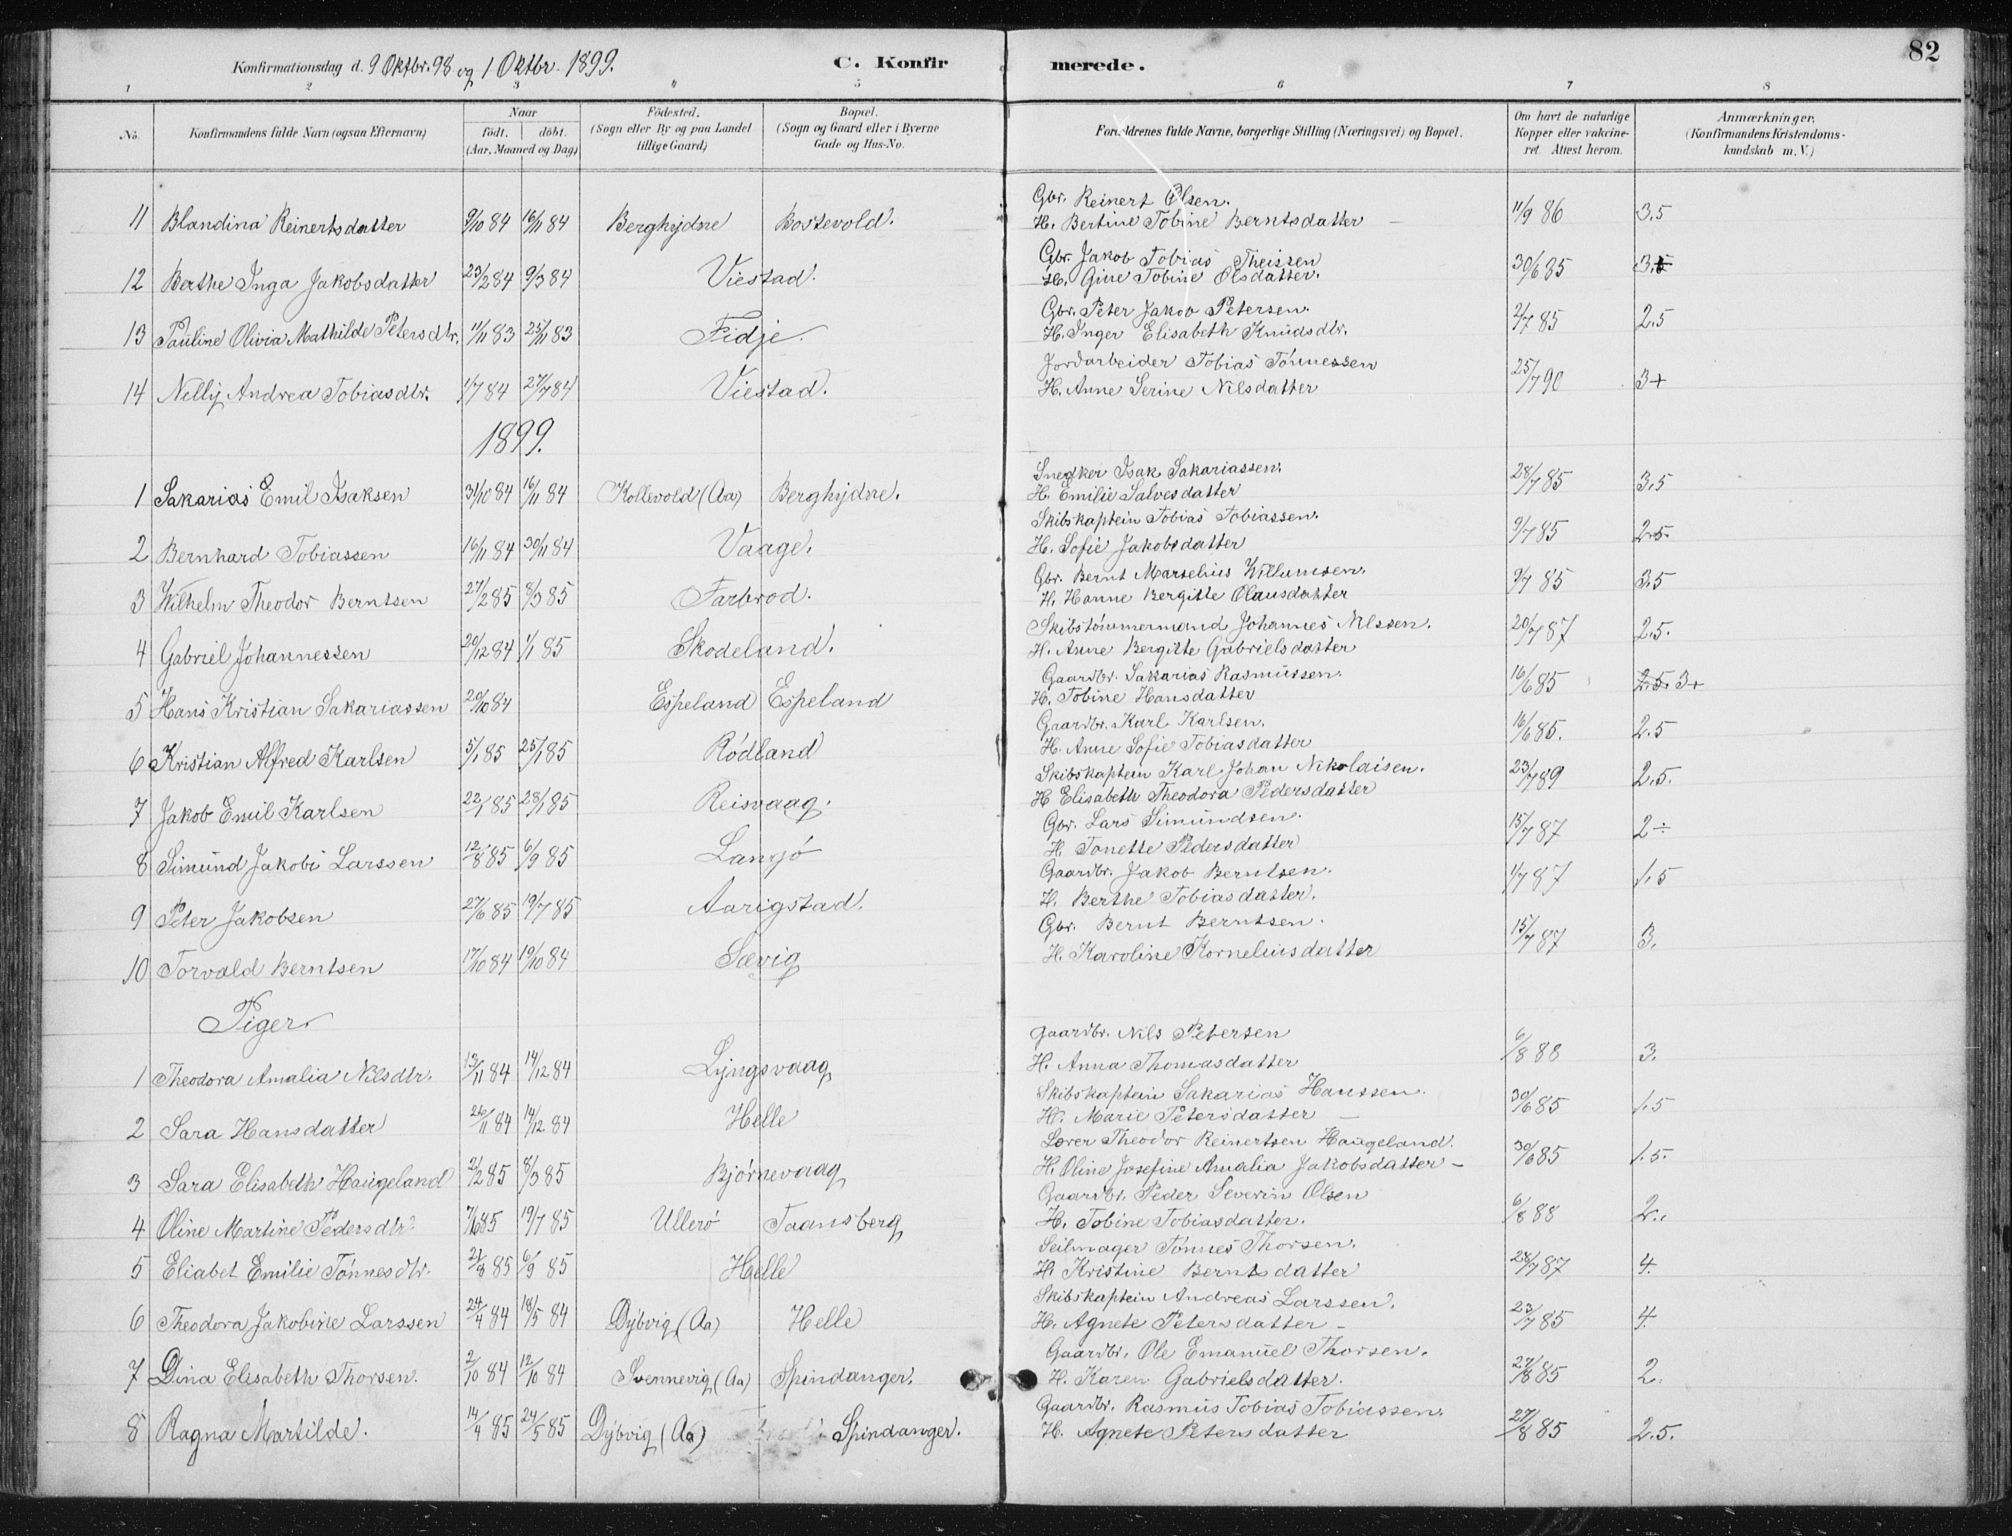 82
Konfirmationsdag d. 9 Oktbr. 98 og 1 Oktbr. 1899.
C. Konfirmerede.
1 2 3 4 5 6 7 8
No.
Konfirmandens fulde Navn (ogsaa Efternavn)
Naar
født. døbt.
(Aar, Maaned og Dag)
Fødested.
(Sogn eller By og paa Landet
tillige Gaard)
Bopæl.
(Sogn og Gaard eller i Byerne
Gade og Hus-No.
Forældrenes fulde Navne, borgerlige Stilling (Næringsvei) og Bopæl.
Om havt de naturlige
Kopper eller vakcine-
ret. Attest herom.
Anmærkninger.
(Konfirmandens Kristendoms-
kundskab m. V.)
Gbr. Reinert Olsen.
11 Blandina Reinertsdatter 9/10 84 16/11 84 Berghydne Bostevold. H. Bertine Tobine Berntsdatter 11/9 86 3.5
Gbr. Jakob Tobias Theissen
12 Berthe Inga Jakobsdatter 23/2 84 9/3 84 Viestad. H. Gine Tobine Olsdatter. 30/6 85
Gbr. Peter Jakob Petersen.
13 Pauline Olivia Mathilde Petersdtr. 11/11 83 25/11 83 Fidje. H. Inger Elisabeth Knudsdtr. 2/7 85 2.5
Jordarbeider Tobias Tønnessen
14 Nelly Andrea Tobiasdtr. 1/7 84 27/7 84 Viestad. H. Anne Serine Nilsdatter 25/7 90 3+
1899.
Snedker Isak Sakariassen.
1 Sakarias Emil Isaksen 31/10 84 16/11 84 Kollevold (Aa) Berghydne. H. Emilie Salvesdatter 28/7 85 3.5
Skibskaptein Tobias Tobiassen.
2 Bernhard Tobiassen 16/11 84 30/11 84 Vaage. H. Sofie Jakobsdatter 9/7 85 2.5.
Gbr. Bernt Marselius Willumsen.
3 Wilhelm Theodor Berntsen 27/2 85 8/3 85 Farbrod. H. Hanne Bergitte Olausdatter 9/7 85 3.5
Skibstømmermand Johannes Nilssen.
4 Gabriel Johannessen 20/12 84 1/1 85 Skodeland. H. Anne Bergitte Gabrielsdatter 20/7 87 2.5.
Gaardbr. Sakarias Rasmussen.
5 Hans Kristian Sakariassen 20/10 84 Espeland Espeland H. Tobine Hansdatter 16/6 85 2.5. 3+
Gaardbr. Karl Karlsen.
6 Kristian Alfred Karlsen 5/1 85 25/1 85 Rødland H. Anne Sofie Tobiasdatter 16/6 85. 2.5
Skibskaptein Karl Johan Nikolaisen.
7 Jakob Emil Karlsen 22/1 85 28/1 85 Reisvaag. H Elisabeth Theodora Pedersdatter 23/7 89 2.5.
Gbr. Lars Simundsen.
8 Simund Jakobi Larssen 12/8 85 6/9 85 H. Tonette Pedersdatter 15/7 87 2÷
Gaardbr. Jakob Berntsen.
9 Peter Jakobsen 27/6 85 19/7 85 Aarigstad. H. Berthe Tobiasdatter. 1/7 87 1.5
Gbr. Bernt Berntsen.
10 Torvald Berntsen 17/10 84 19/10 84 Sævig H. Karoline Korneliusdatter 15/7 87 3.
Piger
Gaardbr. Nils Petersen
1 Theodora Amalia Nilsdtr. 13/11 84 14/12 84 Lyngsvaag H. Anna Thomasdatter 6/8 88 3.
Skibskaptein Sakarias Hanssen.
2 Sara Hansdatter 26/11 84 14/12 84 Helle H. Marie Petersdatter 30/6 85 1.5
Lærer Theodor Reinertsen Haugeland.
3 Sara Elisabeth Haugeland 2/2 85 8/3 85 Bjørnevaag H. Oline Josefine Amalia Jakobsdatter 30/6 85 1.5.
Gaardbr. Peder Severin Olsen
4 Oline Martine Pedersdtr. 7/6 85 19/7 85 Ullerø Taansberg H. Tobine Tobiasdatter. 6/8 88 2.
Seilmager Tønnes Thorsen.
5 Eliabet Emilie Tønnesdtr. 2/8 85 6/9 85 Helle H. Kristine Berntsdatter 28/7 87 4.
Skibskaptein Andreas Larssen.
6 Theodora Jakobine Larssen 24/4 84 18/5 84 Dybvig (Aa) Helle H. Agnete Petersdatter 23/7 85 4.
Gaardbr. Ole Emanuel Thorsen.
7 Dina Elisabeth Thorsen. 2/10 84 12/10 84 Svennevig (Aa) Spindanger. H. Karen Gabrielsdatter. 27/8 85 2.
Gaardbr. Rasmus Tobias Tobiassen.
8 Ragna Martilde. 14/4 85 24/5 85 Dybvig (Aa) Spindanger. H. Agnete Petersdatter 27/8 85 2.5.